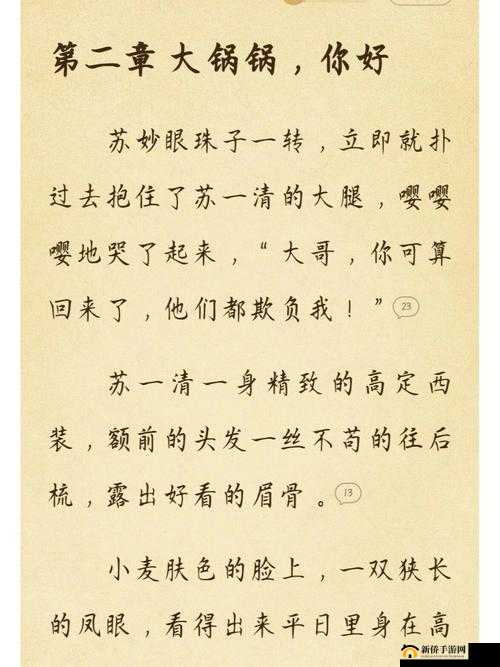 第二章 大锅锅，你好
苏妙眼珠子一转，立即就扑
过去抱住了苏一清的大腿，嘤嘤
嘤地哭了起来，“大哥，你可算
回来了，他们都欺负我！”23
苏一清一身精致的高定西
装，额前的头发一丝不苟的往后
梳，露出好看的眉骨。13
小麦肤色的脸上，一双狭长
的凤眼，看得出来平日里身在高
新侨手游网